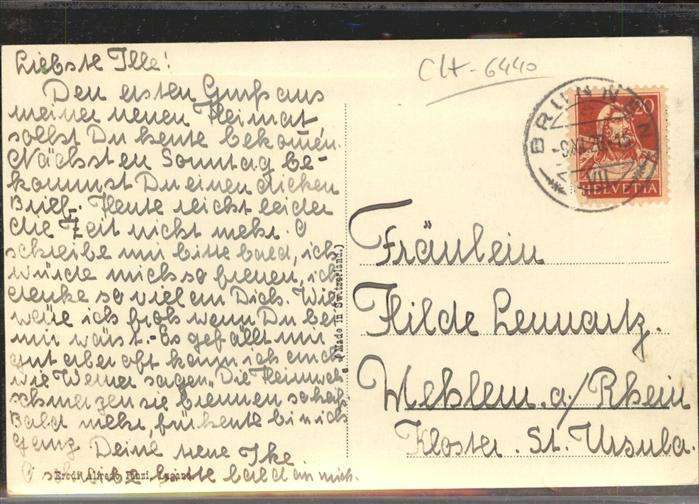 Liebste Ille!
Den ersten Gruß aus
meiner neuen Heimat
sollst Du heute bekommen.
Nächsten Sonntag be-
kommst Du einen dicken
Brief. Heute reicht leider
die Zeit nicht mehr. O
schreibe mir bitte bald, ich
würde mich so freuen, ich
denke so viel an Dich. Wie
wäre ich froh wenn Du bei
mir wärst. Es gefällt mir
gut aber oft kann ich auch
wie Werner sagen. Die Heimweh-
schmerzen sie brennen so
Bald mehr, für heute bin ich
ganz Deine neue Ike
O schreibe bitte bald an mich.
Made in Switzerland.
CH - 6440
BRUNNEN
20
HELVETIA
Fräulein
Hilde Lennartz.
Mehlem. a/Rhein
Kloster. St. Ursula.